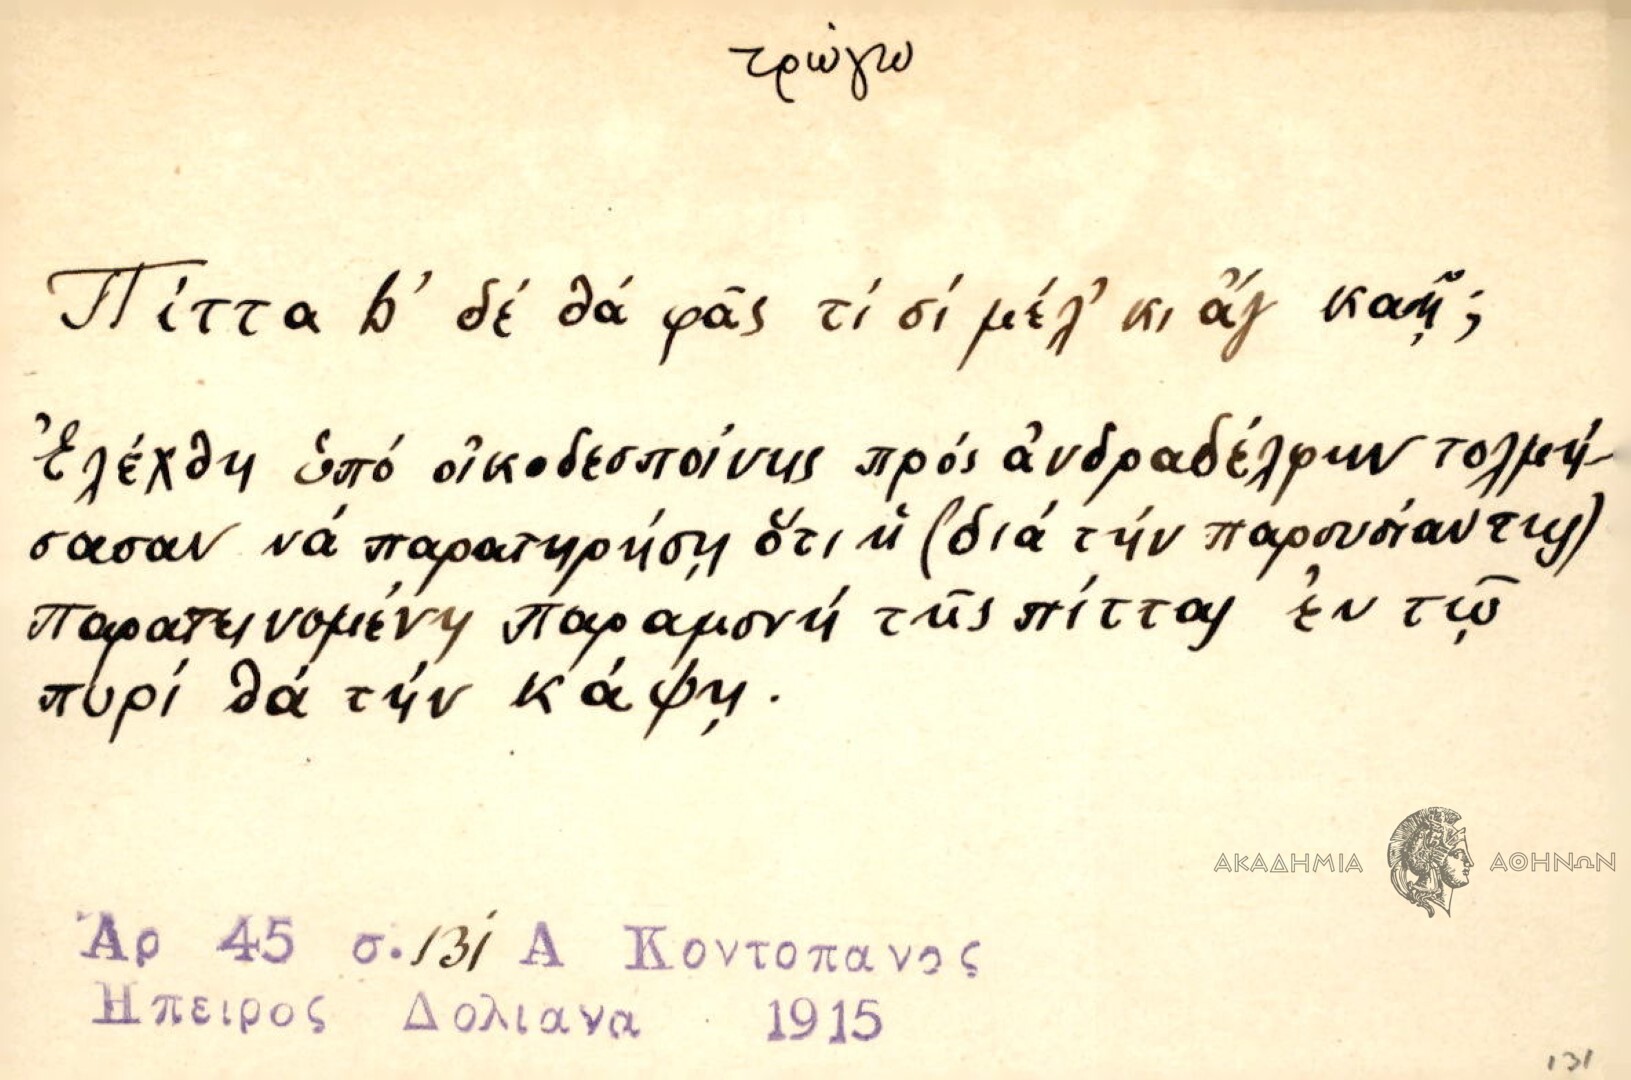 τρώγω
Πίττα b' δέ θά φᾶς τί σί μέλ' κι ἄγ καῇ;
Ἐλέχθη ὑπό οἰκοδεσποίνης πρός ἀνδραδέλφην τολμή-
σασαν νά παρατηρήσῃ ὅτι ἡ (διά τήν παρουσίαν της)
παρατεινομένη παραμονή τῆς πίττας ἐν τῷ
πυρί θά τήν κάψῃ.
ΑΚΑΔΗΜΙΑ ΑΘΗΝΩΝ
Ἀρ 45 σ. 131 Α Κοντοπανος
Ηπειρος Δολιανα 1915
131